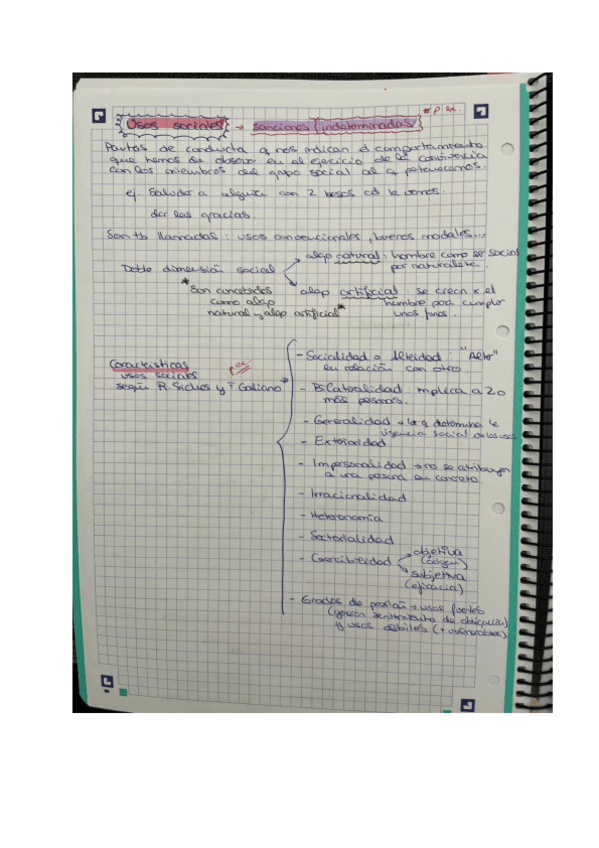 * P. ex.
Usos sociales → sanciones indeterminadas
Pautas de conducta q nos indican el comportamiento
que hemos de observar en el ejercicio de la convivencia
con los miembros del grupo social al q pertenecemos.
ej Saludar a alguien con 2 besos cd le vemos.
dar las gracias.
Son tb llamadas: usos convencionales, buenos modales...
Doble dimensión social
algo natural: hombre como ser social
por naturaleza.
algo artificial: se crean x el
hombre para cumplir
unos fines.
*Son concebidos
como algo
natural y algo artificial*
Características P. ex
usos sociales
según R. Siches y F. Galiano*
- Socialidad o Alteidad: "Alter"
en relación con otro.
- Bilateralidad: implica a 2 o
más personas.
- Generalidad → la q determina la
vigencia social de los usos
- Exterioridad
- Impersonalidad → no se atribuyen
a una persona en concreto.
- Irracionalidad
- Heteronomía
- Sectorialidad
- Coercibilidad
objetiva
subjetiva
(eficacia)
- Grados de presión → usos fuertes
sentimiento de obligación)
y usos débiles (+ vulnerables)